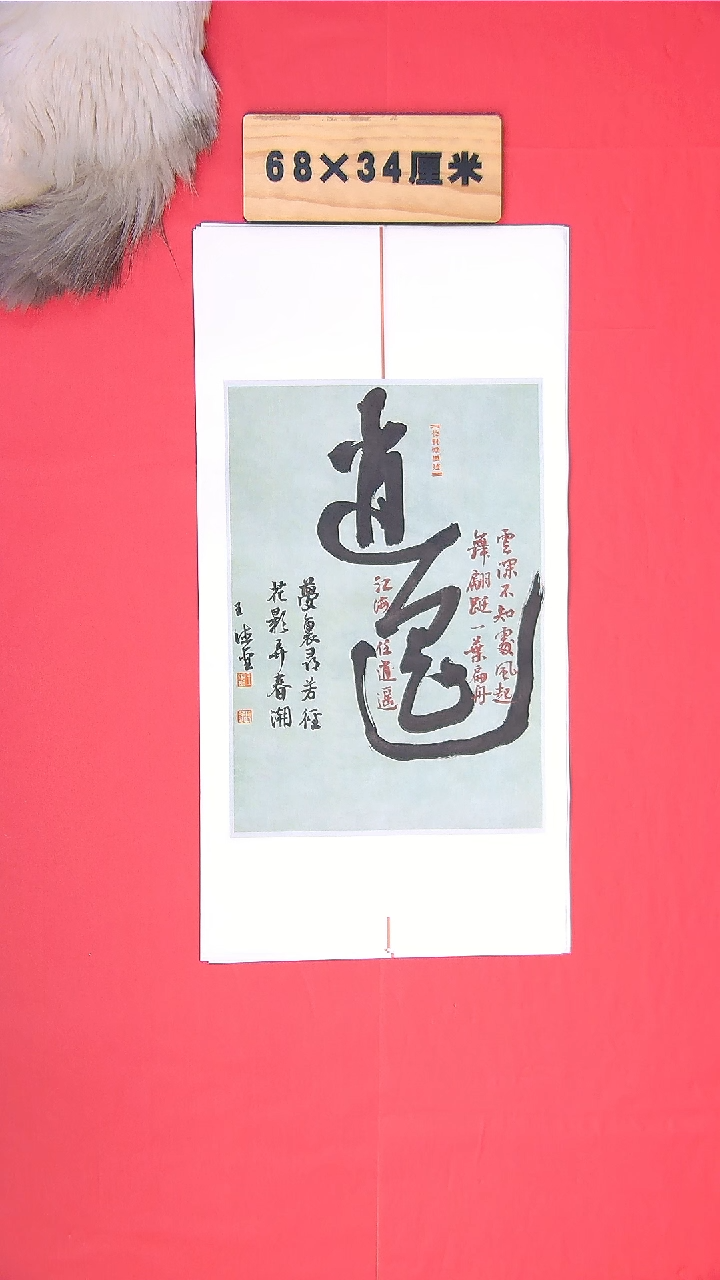 68×34厘米
逍遥
雲深不知處風起
舞翩跹一葉扁舟
江海任逍遥
夢裏尋芳徑
花影弄春潮